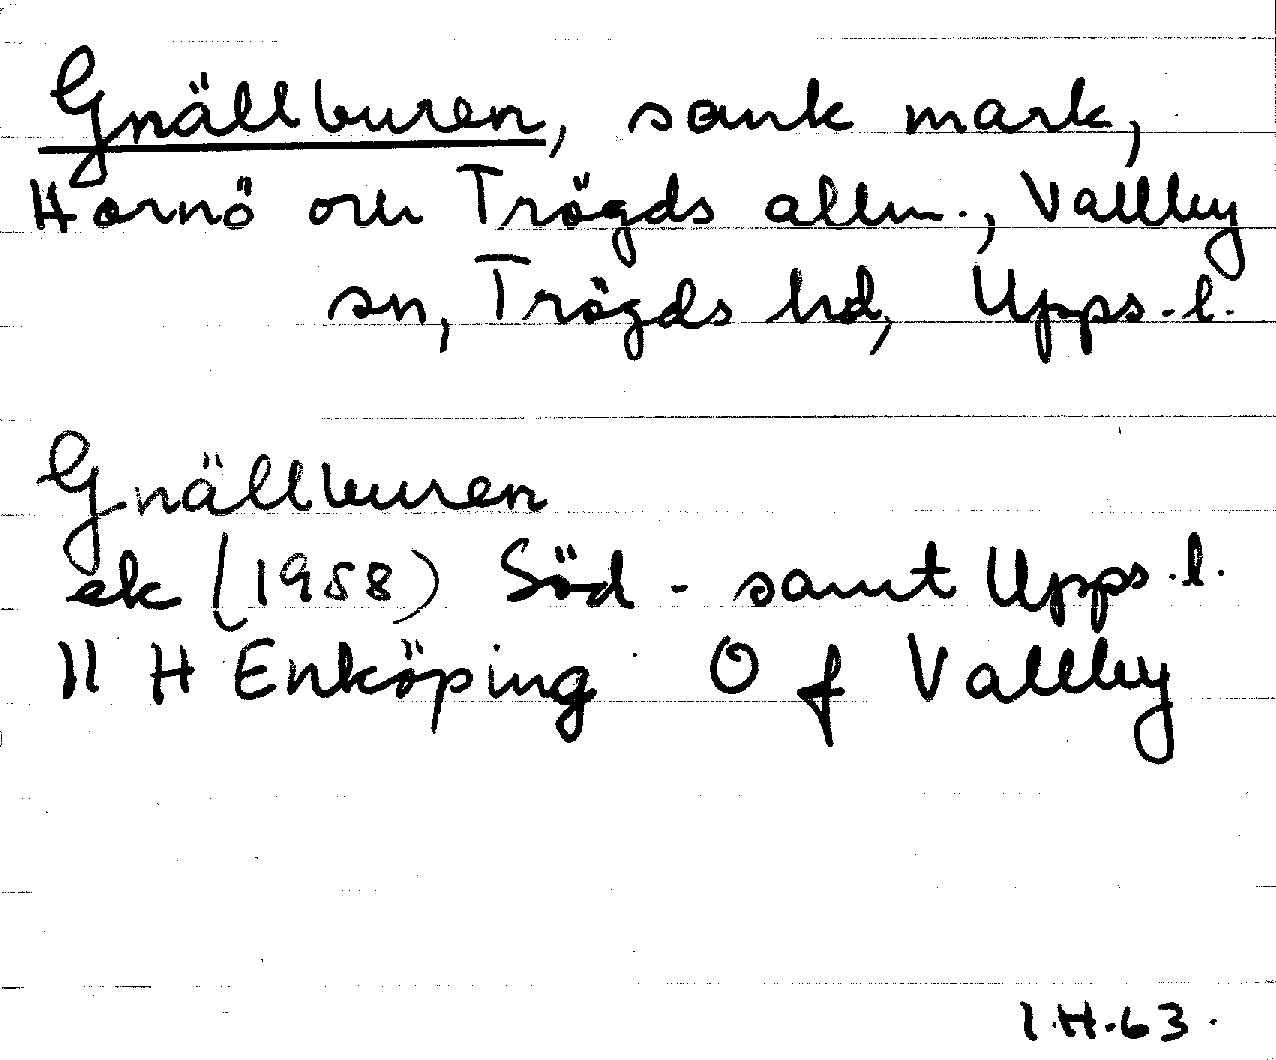 Gnällburen, sank mark,
Hornö och Trögds allm., Vallby
sn, Trögds hd, Upps.l.
Gnällburen
ek (1958) Söd- samt Upps.l.
11 H Enköping O f Vallby
I.H.63.